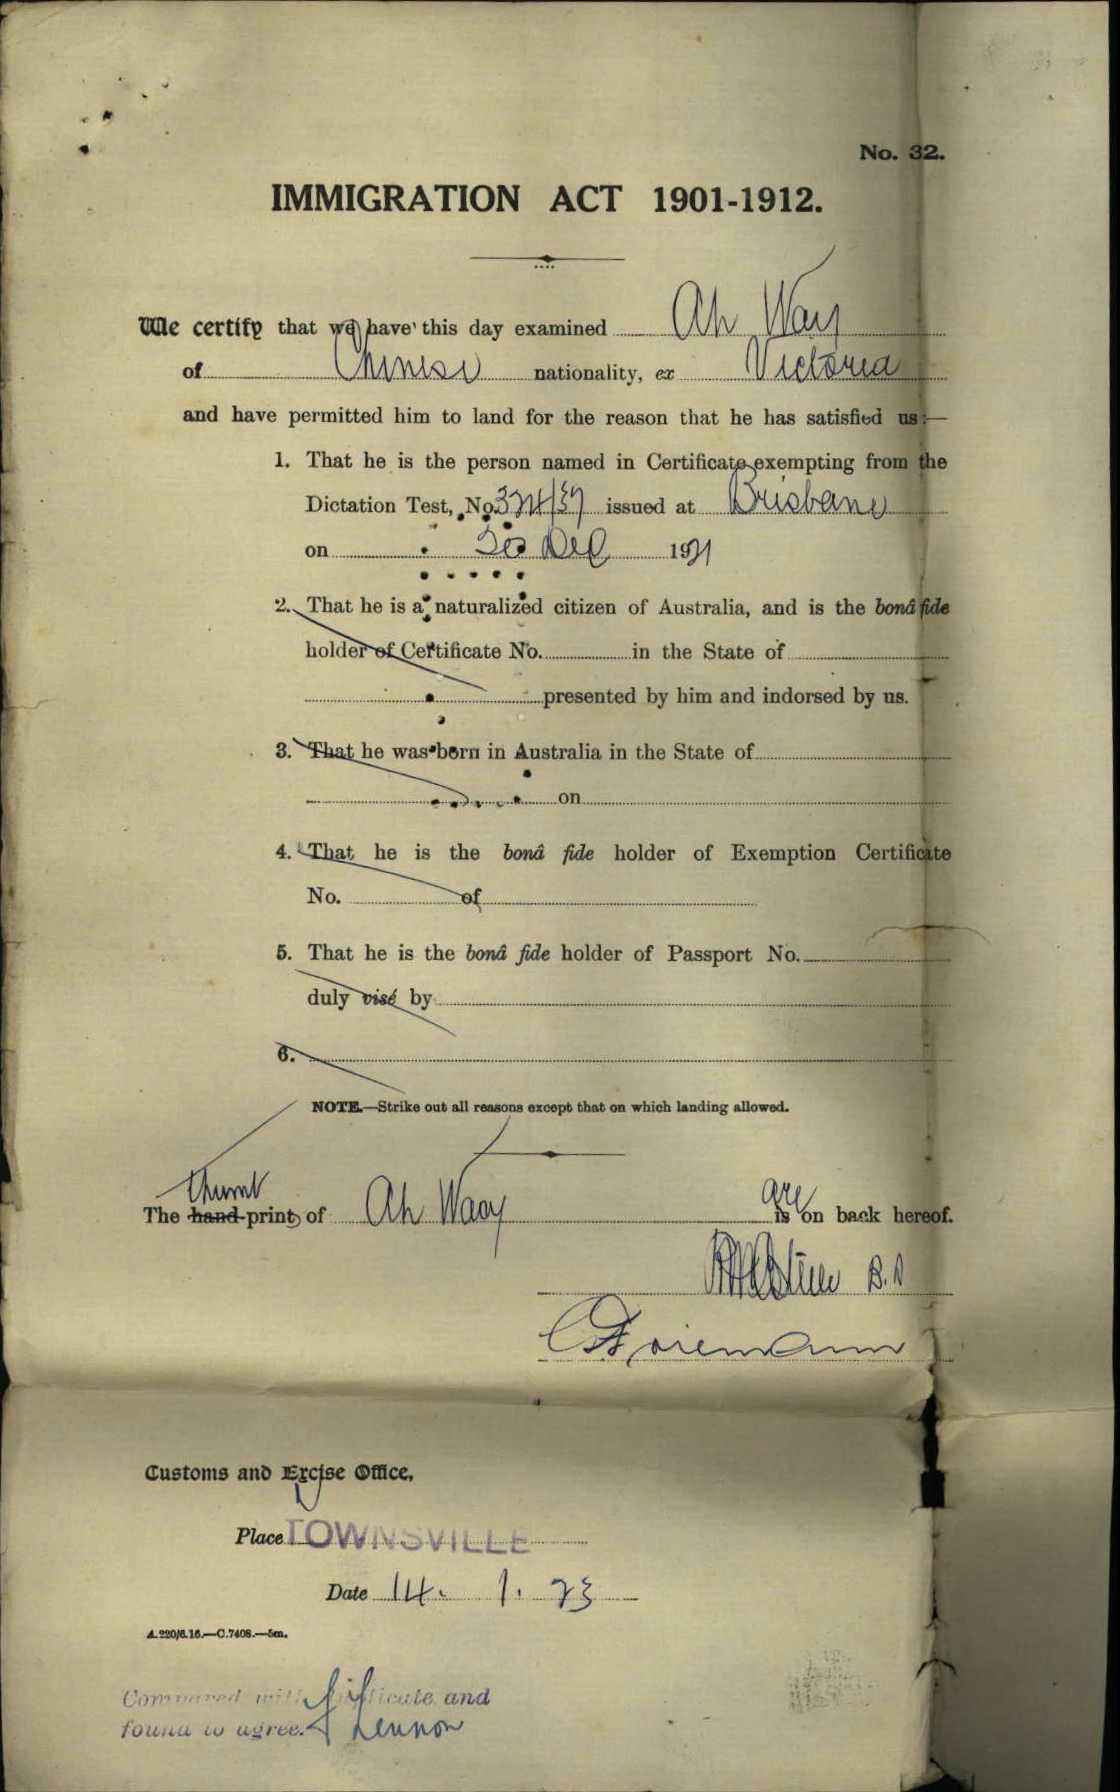 No. 32.
IMMIGRATION ACT 1901-1912.
We certify that we have this day examined Ah Way
of Chinese nationality, ex Victoria
and have permitted him to land for the reason that he has satisfied us:—
1. That he is the person named in Certificate exempting from the
Dictation Test, No. 324/37 issued at Brisbane
on Dec 1921
2. That he is a naturalized citizen of Australia, and is the bonâ fide
holder of Certificate No. in the State of
presented by him and indorsed by us.
3. That he was born in Australia in the State of
on
4. That he is the bonâ fide holder of Exemption Certificate
No. of
5. That he is the bonâ fide holder of Passport No.
duly visé by
6.
NOTE.—Strike out all reasons except that on which landing allowed.
thumb are
The hand-prints of Ah Way is on back hereof.
Customs and Excise Office,
Place TOWNSVILLE
Date 14. 1. 23
A.220/6.16.—C.7408.—5m.
Compared with Certificate and
found to agree. Lennon